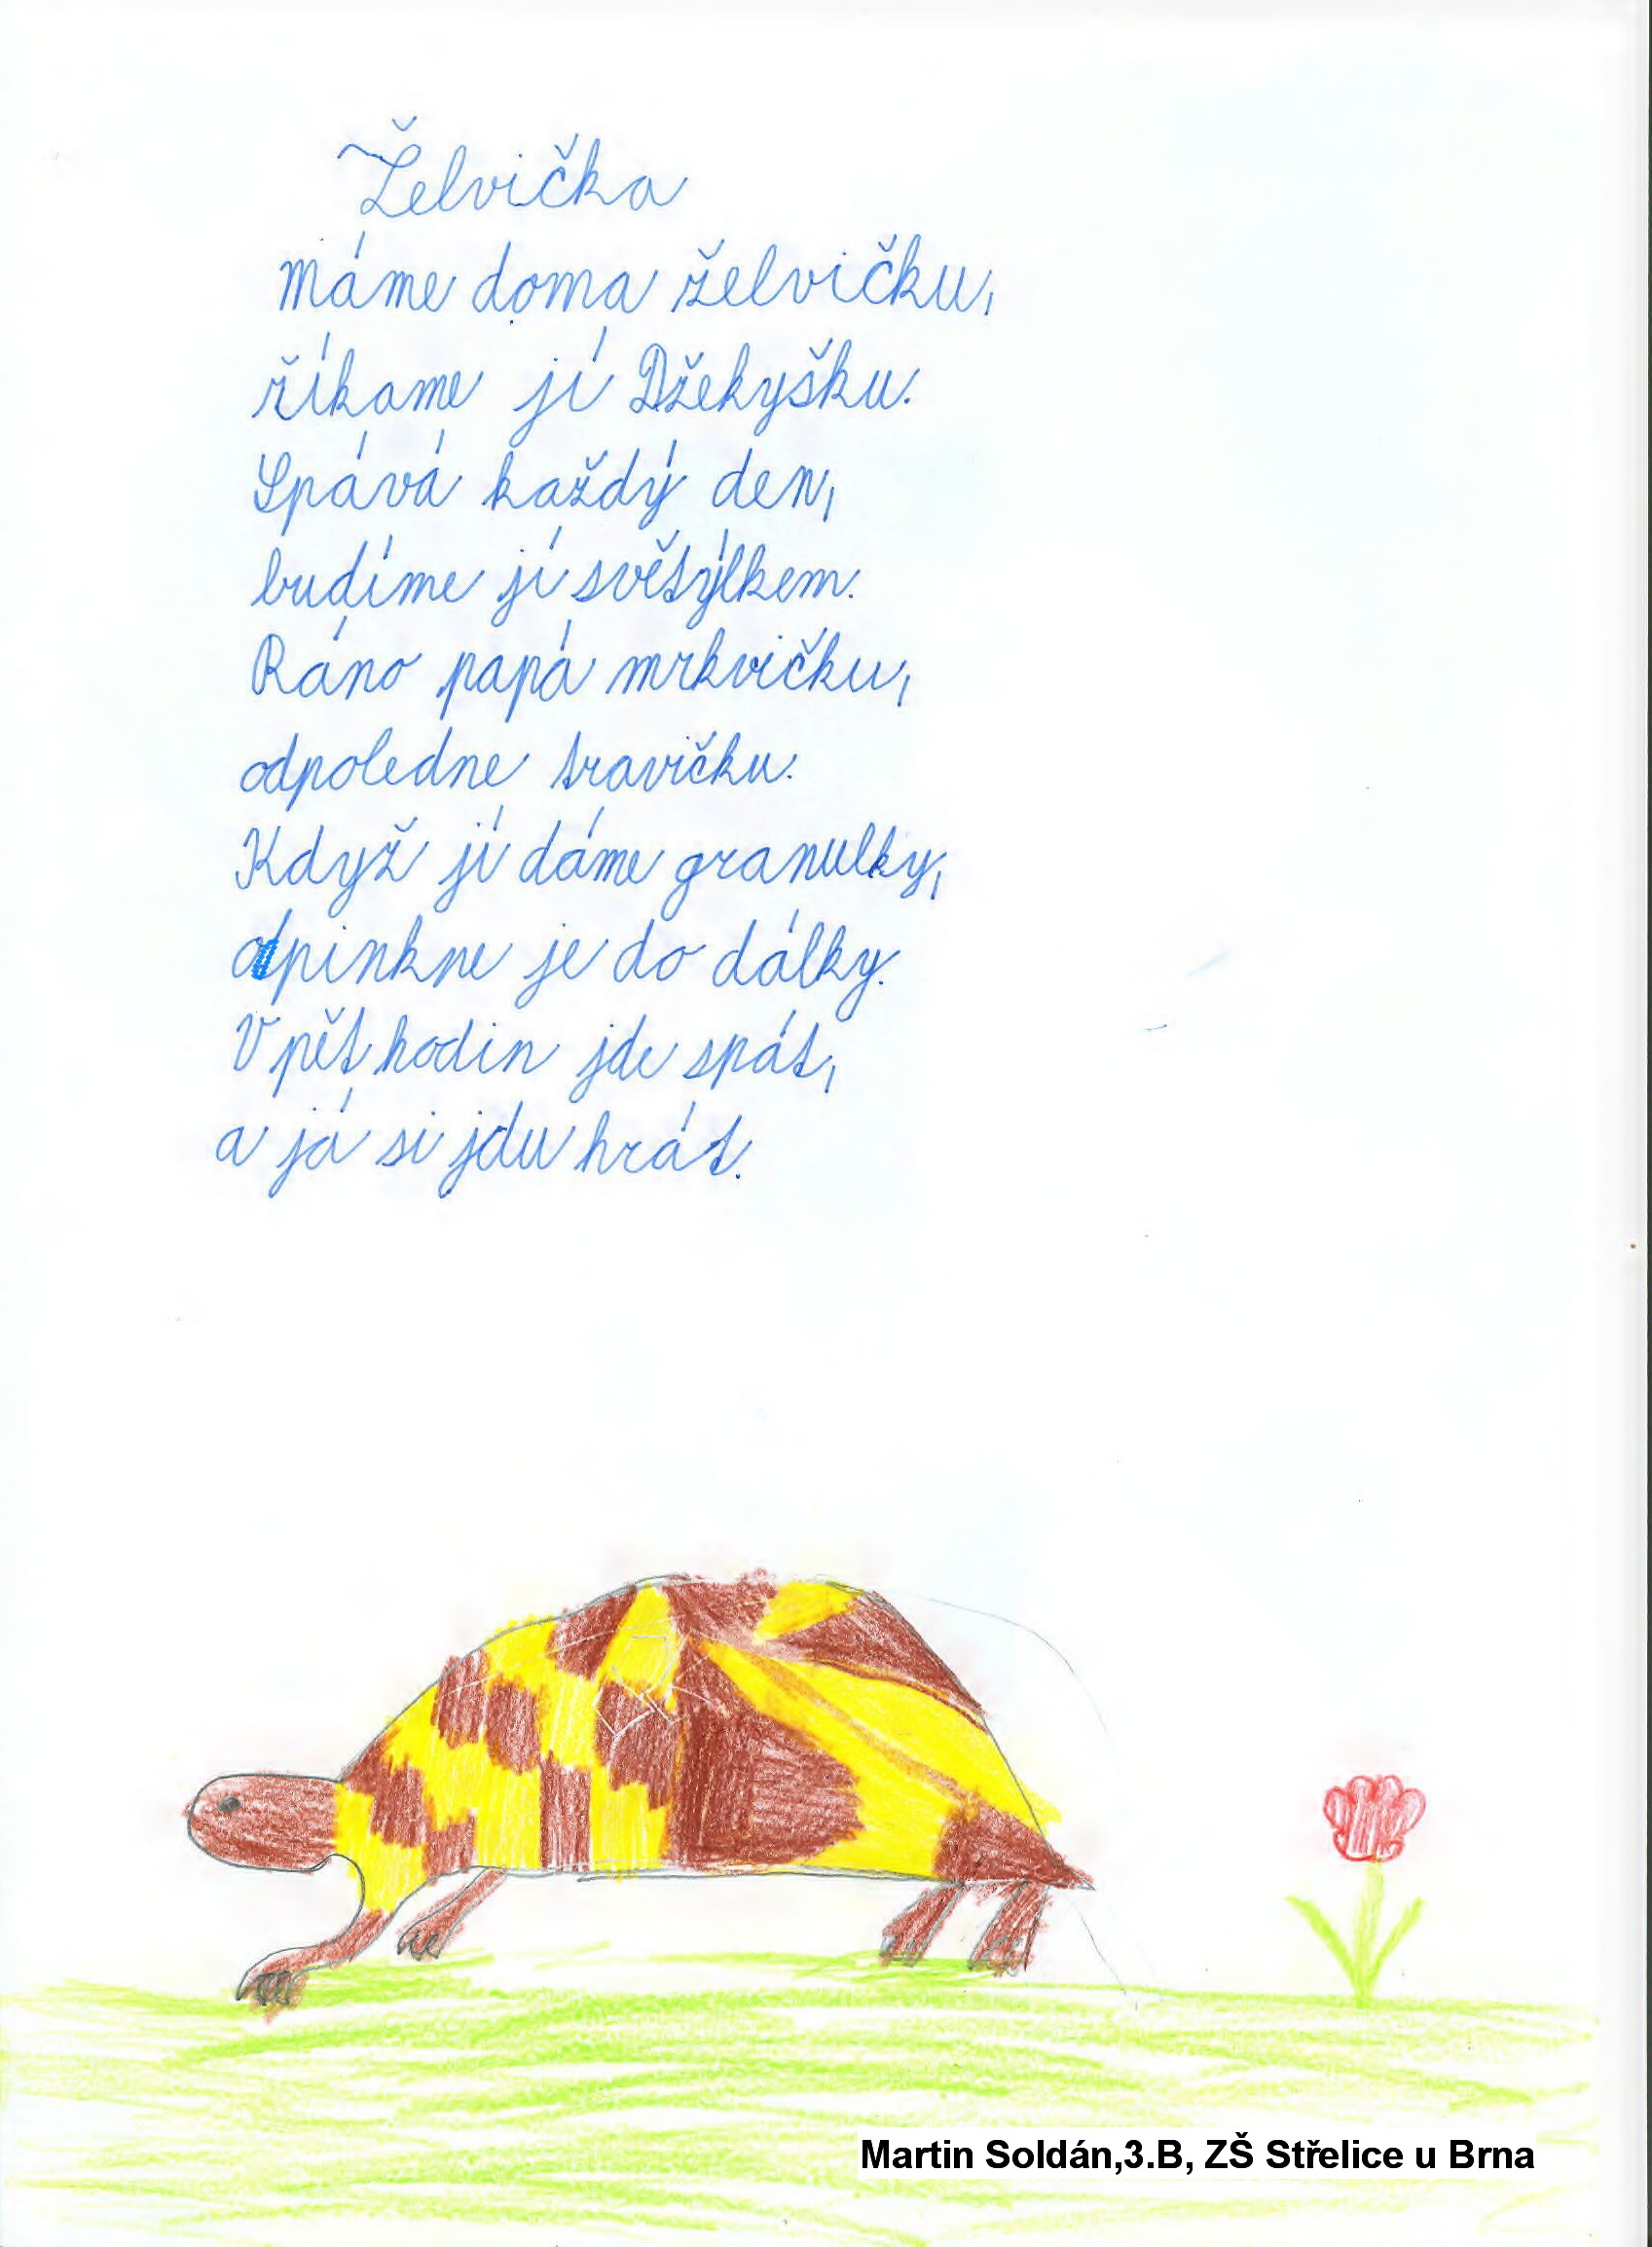 Želvička
Máme doma želvičku,
říkame jí Džekyšku.
Spává každý den,
budíme jí světýlkem.
Ráno papá mrkvičku,
odpoledne travičku.
Když jí dáme granulky,
odpinkne je do dálky.
V pět hodin jde spát,
a já si jdu hrát.
Martin Soldán,3.B, ZŠ Střelice u Brna